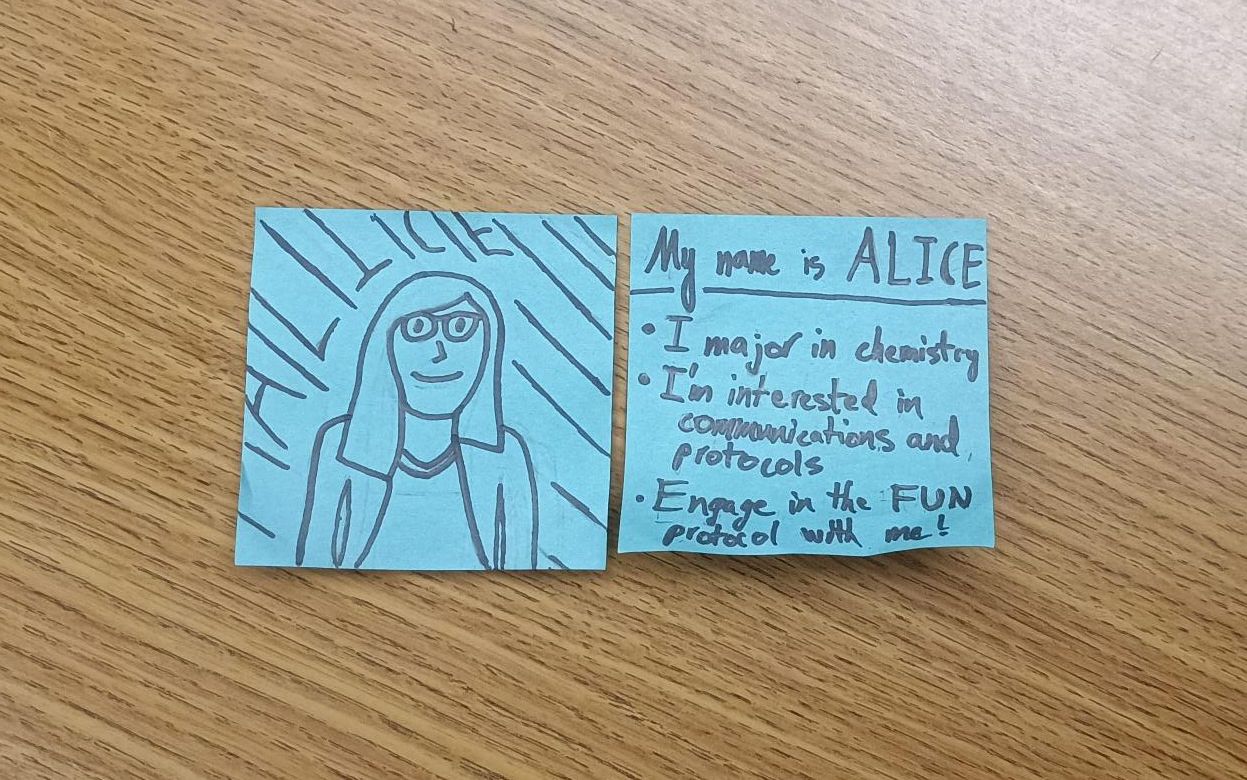 ALICE
My name is ALICE
• I major in chemistry
• I'm interested in
communications and
protocols
• Engage in the FUN
protocol with me!